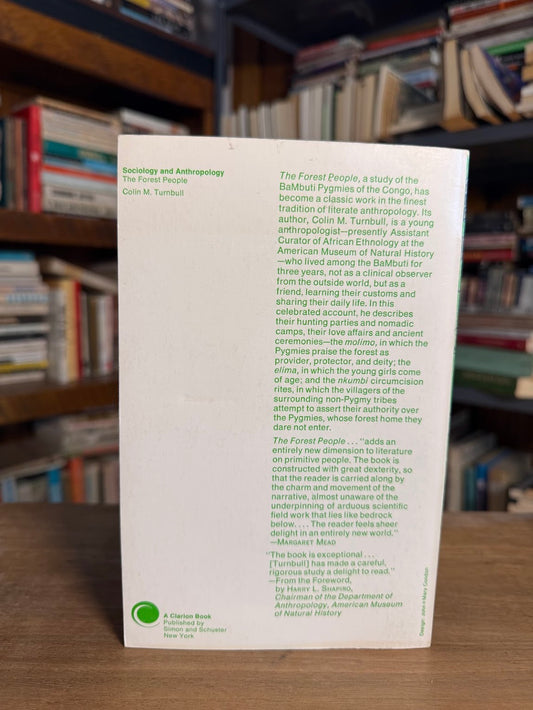 Sociology and Anthropology
The Forest People
Colin M. Turnbull
The Forest People, a study of the
BaMbuti Pygmies of the Congo, has
become a classic work in the finest
tradition of literate anthropology. Its
author, Colin M. Turnbull, is a young
anthropologist—presently Assistant
Curator of African Ethnology at the
American Museum of Natural History
—who lived among the BaMbuti for
three years, not as a clinical observer
from the outside world, but as a
friend, learning their customs and
sharing their daily life. In this
celebrated account, he describes
their hunting parties and nomadic
camps, their love affairs and ancient
ceremonies—the molimo, in which the
Pygmies praise the forest as
provider, protector, and deity; the
elima, in which the young girls come
of age; and the nkumbi circumcision
rites, in which the villagers of the
surrounding non-Pygmy tribes
attempt to assert their authority over
the Pygmies, whose forest home they
dare not enter.
The Forest People . . . "adds an
entirely new dimension to literature
on primitive people. The book is
constructed with great dexterity, so
that the reader is carried along by
the charm and movement of the
narrative, almost unaware of the
underpinning of arduous scientific
field work that lies like bedrock
below. . . . The reader feels sheer
delight in an entirely new world."
—MARGARET MEAD
"The book is exceptional . . .
[Turnbull] has made a careful,
rigorous study a delight to read."
—From the Foreword,
by HARRY L. SHAPIRO,
Chairman of the Department of
Anthropology, American Museum
of Natural History
A Clarion Book
Published by
Simon and Schuster
New York
Design: John + Mary Condon